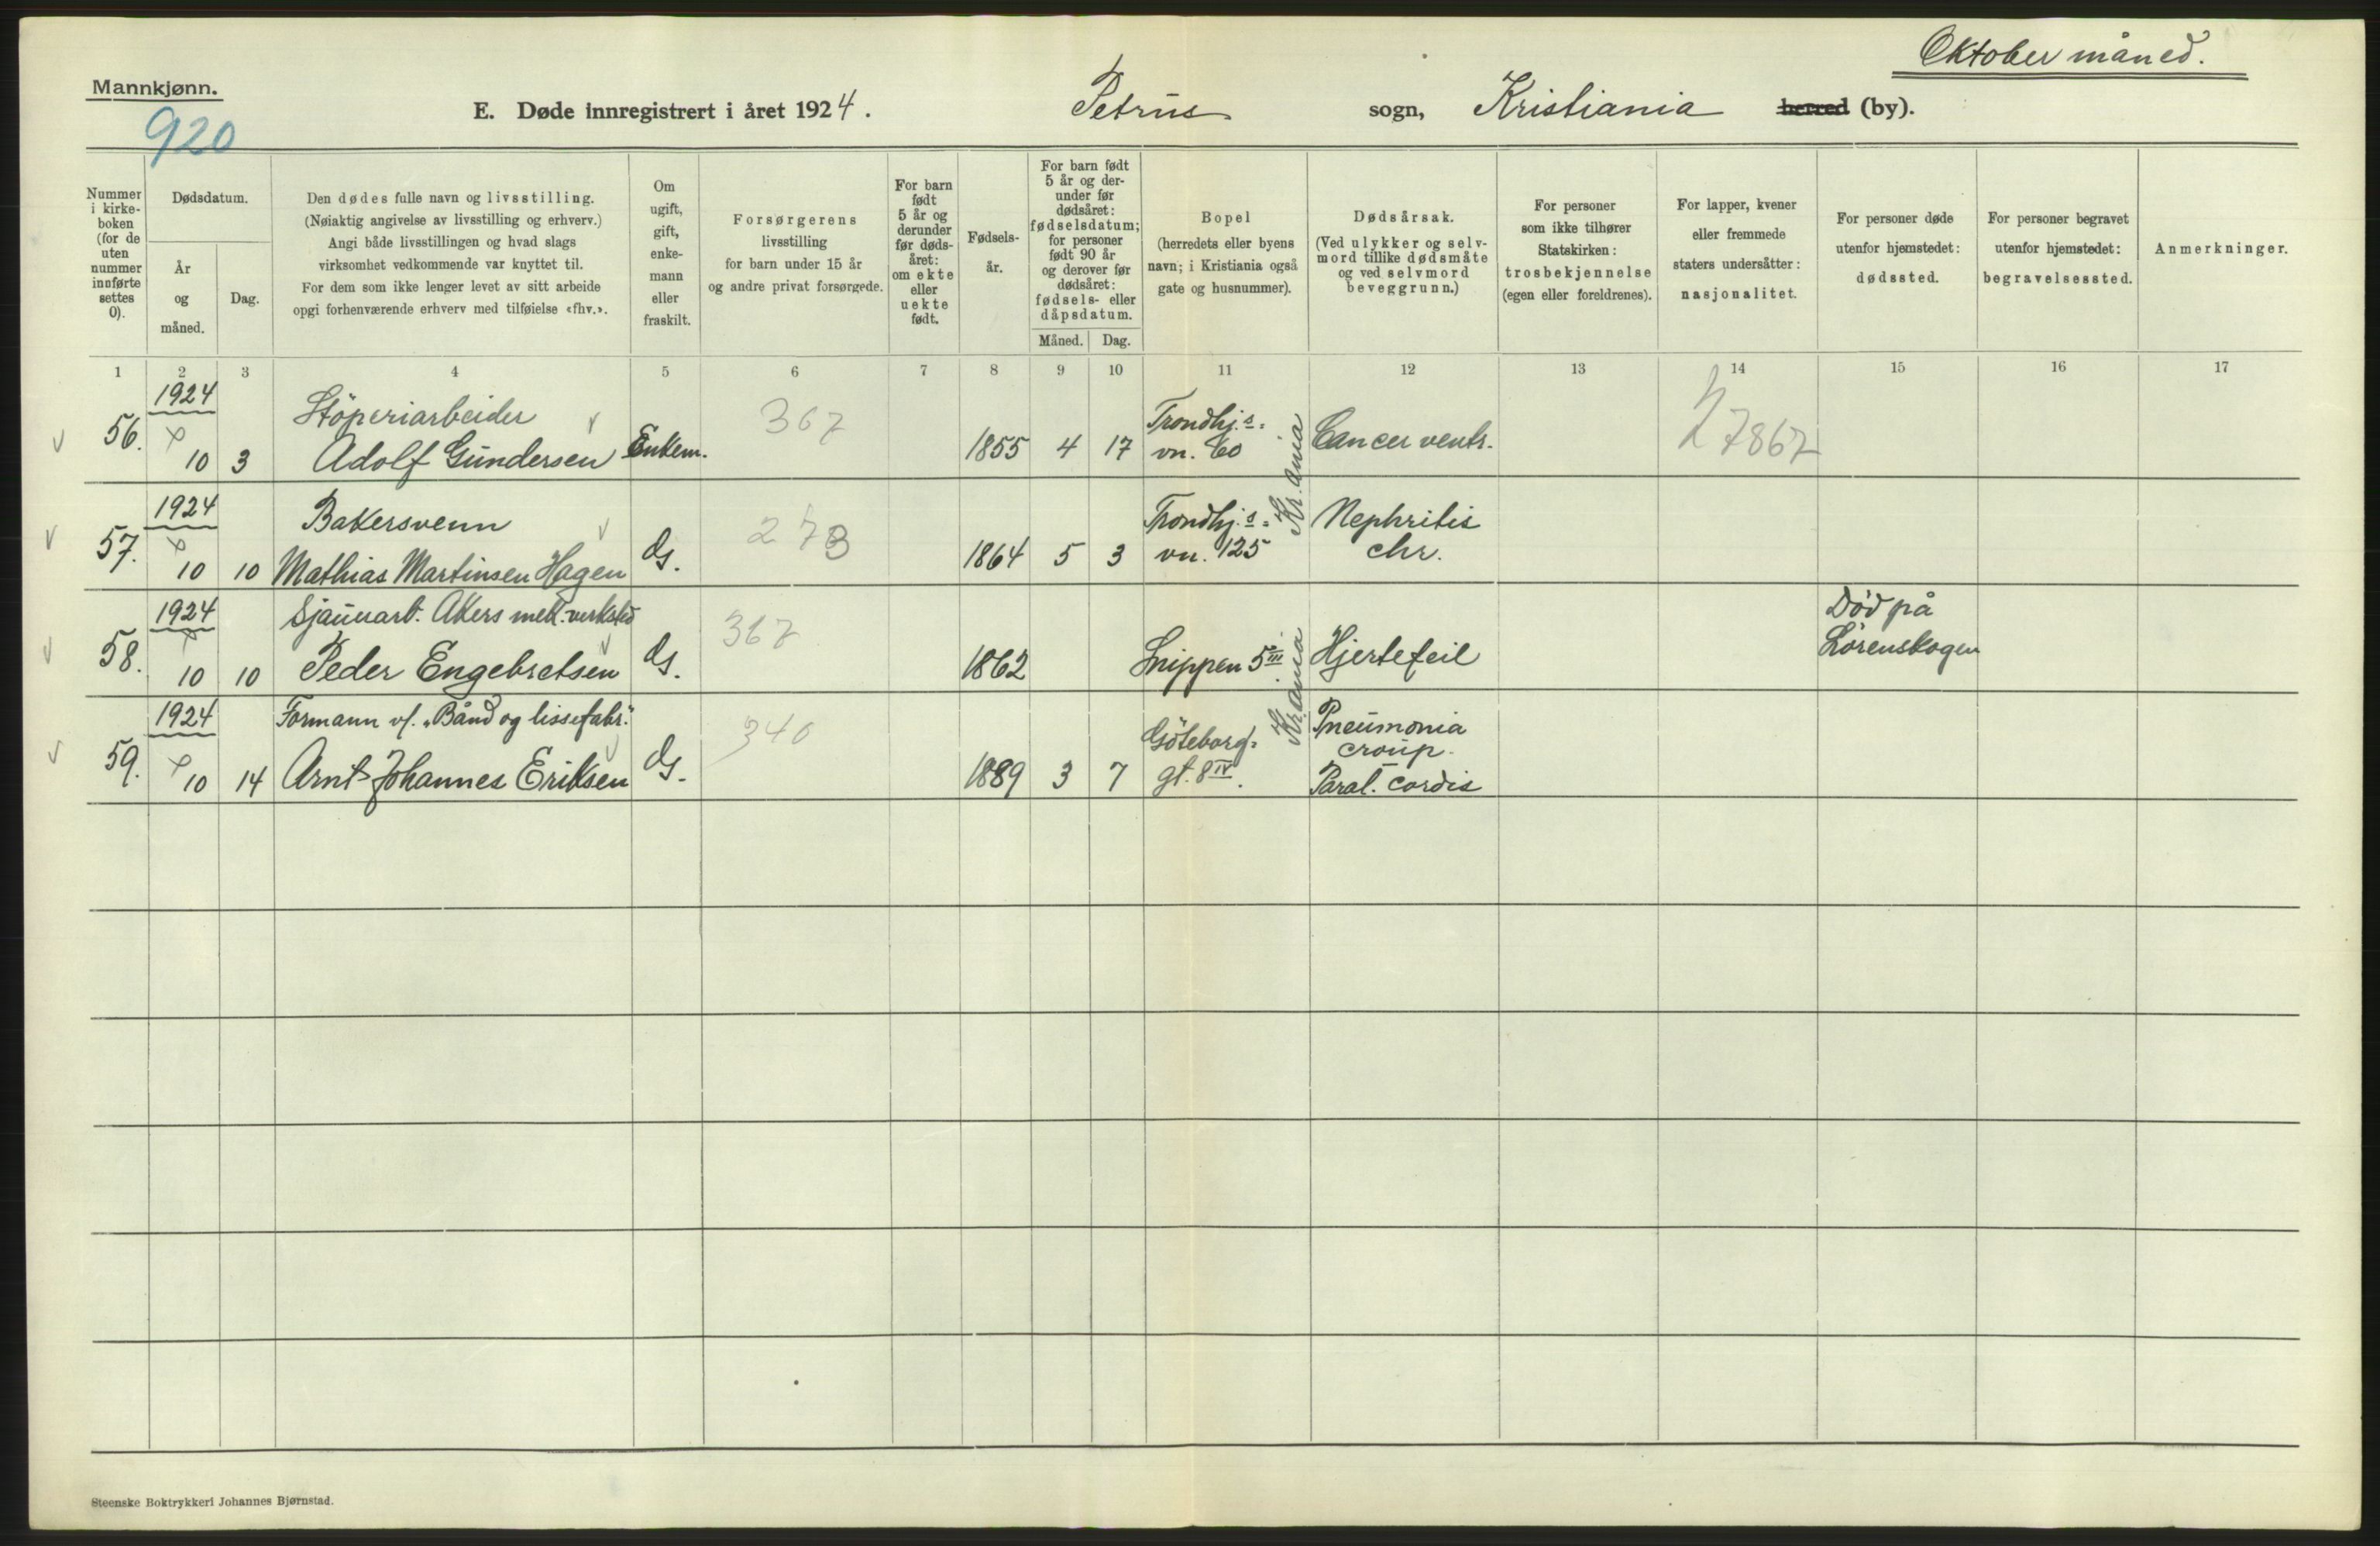 Oktober måned.
Mannkjønn.
E. Døde innregistrert i året 1924. Petrus sogn, Kristiania herred (by).
920
Nummer i kirke-boken (for de uten nummer innførte settes 0).
Dødsdatum.
År og måned.
Dag.
Den dødes fulle navn og livsstilling.
(Nøiaktig angivelse av livsstilling og erhverv.)
Angi både livsstillingen og hvad slags
virksomhet vedkommende var knyttet til.
For dem som ikke lenger levet av sitt arbeide
opgi forhenværende erhverv med tilføielse «fhv.».
Om ugift, gift, enke-mann eller fraskilt.
Forsørgerens
livsstilling
for barn under 15 år
og andre privat forsørgede.
For barn født 5 år og derunder før døds-året: om ekte eller uekte født.
Fødsels-år.
For barn født 5 år og der-under før dødsåret: fødselsdatum; for personer født 90 år og derover før dødsåret: fødsels- eller dåpsdatum.
Måned. Dag.
Bopel
(herredets eller byens
navn; i Kristiania også
gate og husnummer).
Dødsårsak.
(Ved ulykker og selv-
mord tillike dødsmåte
og ved selvmord
beveggrunn.)
For personer
som ikke tilhører
Statskirken:
trosbekjennelse
(egen eller foreldrenes).
For lapper, kvener
eller fremmede
staters undersåtter:
nasjonalitet.
For personer døde
utenfor hjemstedet:
dødssted.
For personer begravet
utenfor hjemstedet:
begravelsessted.
Anmerkninger.
1 2 3 4 5 6 7 8 9 10 11 12 13 14 15 16 17
1924 Støperiarbeider 367 Trondhj.s=
56. 10 3 Adolf Gundersen Enkem. 1855 4 17 vn. 60 Kr.ania Cancer ventr. 27867
1924 Bakersvenn 273 Trondhj.s= Nephritis
57. 10 10 Mathias Martinsen Hagen G. 1864 5 3 vn. 125 chr.
1924 Sjauuarb. Akers mek. verksted 367 Død på
58. 10 10 Peder Engebretsen G. 1862 Snippen 5 III Kr.ania Hjertefeil Lørenskogen
1924 Formann v/. „Bånd og lissefabr." 340 Göteborg= Pneumonia
croup.
59. 10 14 Arnt Johannes Eriksen G. 1889 3 7 gt. 8 IV. Paral. cordis
Steenske Boktrykkeri Johannes Bjørnstad.